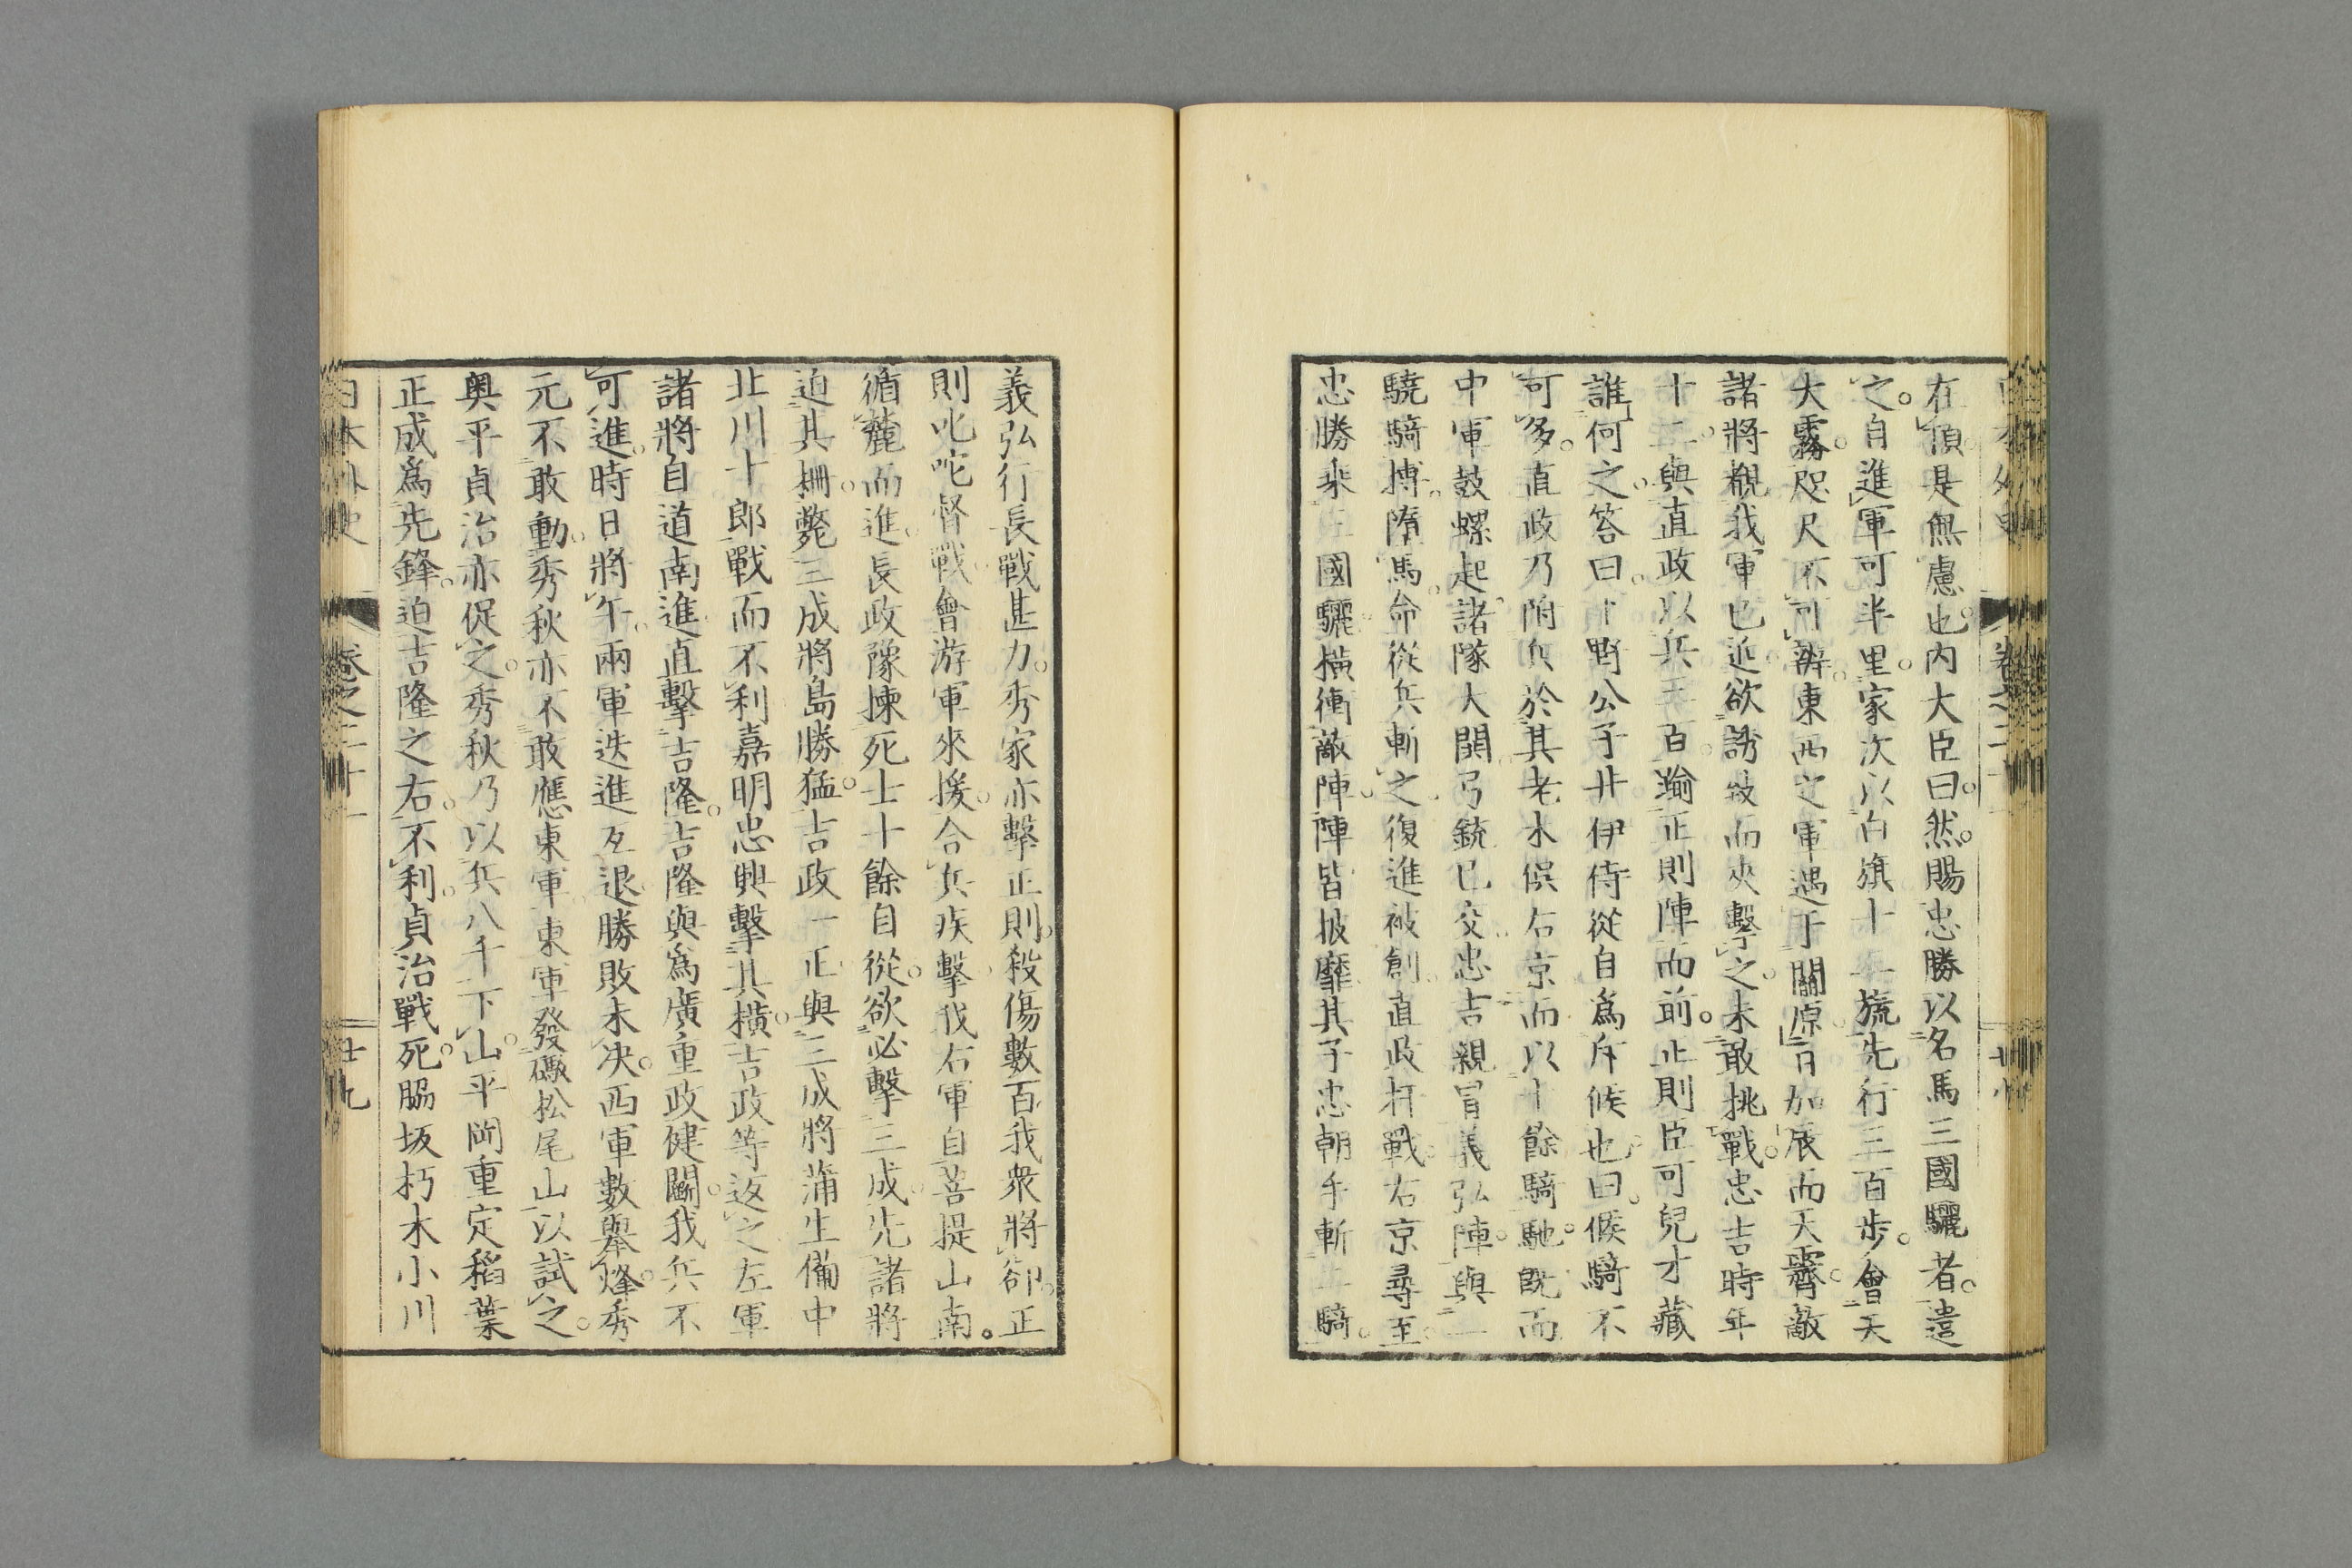 在頂是無慮也。内大臣曰。然。賜忠勝以名馬三國驪者。遣
之。自進軍可半里。家次以白旗十二旒先行三百歩。會天
大霧。咫尺不可辨。東西之軍遇于關原。日加辰而天霽。敵
諸將覩我軍已近。欲誘致而夾擊之。未敢挑戰。忠吉時年
十二。與直政以兵三百踰正則陣而前。正則臣可兒才藏
誰何之。答曰。下野公子井伊侍從自爲斥候也。曰。候騎不
可多。直政乃附兵於其老木俣右京。而以十餘騎馳。既而
中軍鼓螺起。諸隊大開。弓銃已交。忠吉親冒義弘陣。與一
驍騎搏。隋馬。命從兵斬之。復進被創。直政扞戰。右京尋至。
忠勝乘三國驪横衝敵陣。陣皆披靡。其子忠朝手斬二騎。
義弘行長戰甚力。秀家亦擊正則。殺傷數百。我衆將卻。正
則叱咤督戰。會游軍來援。合兵疾擊。我右軍自菩提山南。
循麓而進。長政豫揀死士十餘自從。欲必擊三成。先諸將
迫其柵。斃三成將島勝猛。吉政一正與三成將蒲生備中
北川十郎戰而不利。嘉明忠興擊其横。吉政等返之。左軍
諸將自道南進。直擊吉隆。吉隆與爲廣重政健鬭。我兵不
可進。時日將午。兩軍迭進互退。勝敗未決。西軍數舉烽。秀
元不敢動。秀秋亦不敢應東軍。東軍發礮松尾山以試之。
奥平貞治亦促之。秀秋乃以兵八千下山。平岡重定稻葉
正成爲先鋒。迫吉隆之右。不利。貞治戰死。脇坂朽木小川
日本外史 卷之二十一 廿九